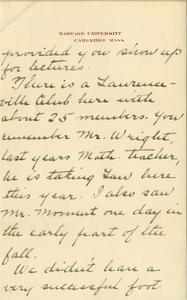 HARVARD UNIVERSITY
CAMBRIDGE MASS.
provided you show up
for lectures.
There is a Lawrence-
ville Club here with
about 25 members. You
remember Mr. Wright,
last years Math. teacher,
he is taking Law here
this year. I also saw
Mr. Monnet one day in
the early part of the
fall.
We didn't have a
very successful foot